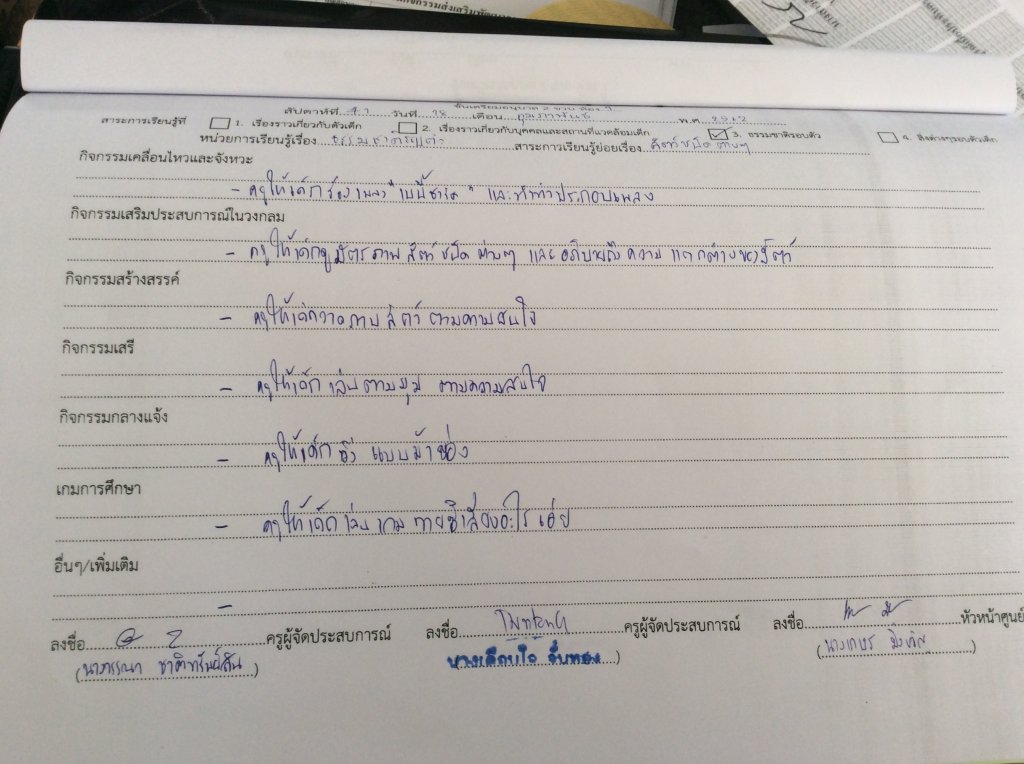 กิจกรรมส่งเสริมพัฒนา
ชั้นเตรียมอนุบาล 2
สัปดาห์ที่ วันที่ 18 เดือน กุมภาพันธ์ พ.ศ. 2562
สาระการเรียนรู้ที่ 1. เรื่องราวเกี่ยวกับตัวเด็ก 2. เรื่องราวเกี่ยวกับบุคคลและสถานที่แวดล้อมเด็ก 3. ธรรมชาติรอบตัว 4. สิ่งต่างๆรอบตัวเด็ก
หน่วยการเรียนรู้เรื่อง สาระการเรียนรู้ย่อยเรื่อง สัตว์ชนิดต่างๆ
กิจกรรมเคลื่อนไหวและจังหวะ
- ครูให้เด็กร้องเพลง "เบบี้ชาร์ค" และทำท่าประกอบเพลง
กิจกรรมเสริมประสบการณ์ในวงกลม
- ครูให้เด็กดูบัตรภาพสัตว์ชนิดต่างๆ และอธิบายถึงความแตกต่างของสัตว์
กิจกรรมสร้างสรรค์
- ครูให้เด็กวาดภาพสัตว์ตามความสนใจ
กิจกรรมเสรี
- ครูให้เด็กเล่นตามมุม ตามความสนใจ
กิจกรรมกลางแจ้ง
- ครูให้เด็กวิ่งแบบม้าย่อง
เกมการศึกษา
- ครูให้เด็กเล่นเกมทายซิเสียงอะไรเอ่ย
อื่นๆ/เพิ่มเติม
-
ลงชื่อ ครูผู้จัดประสบการณ์ ลงชื่อ ครูผู้จัดประสบการณ์ ลงชื่อ หัวหน้าศูนย์
( ) นางเตือนใจ จั่นทอง ) ( )